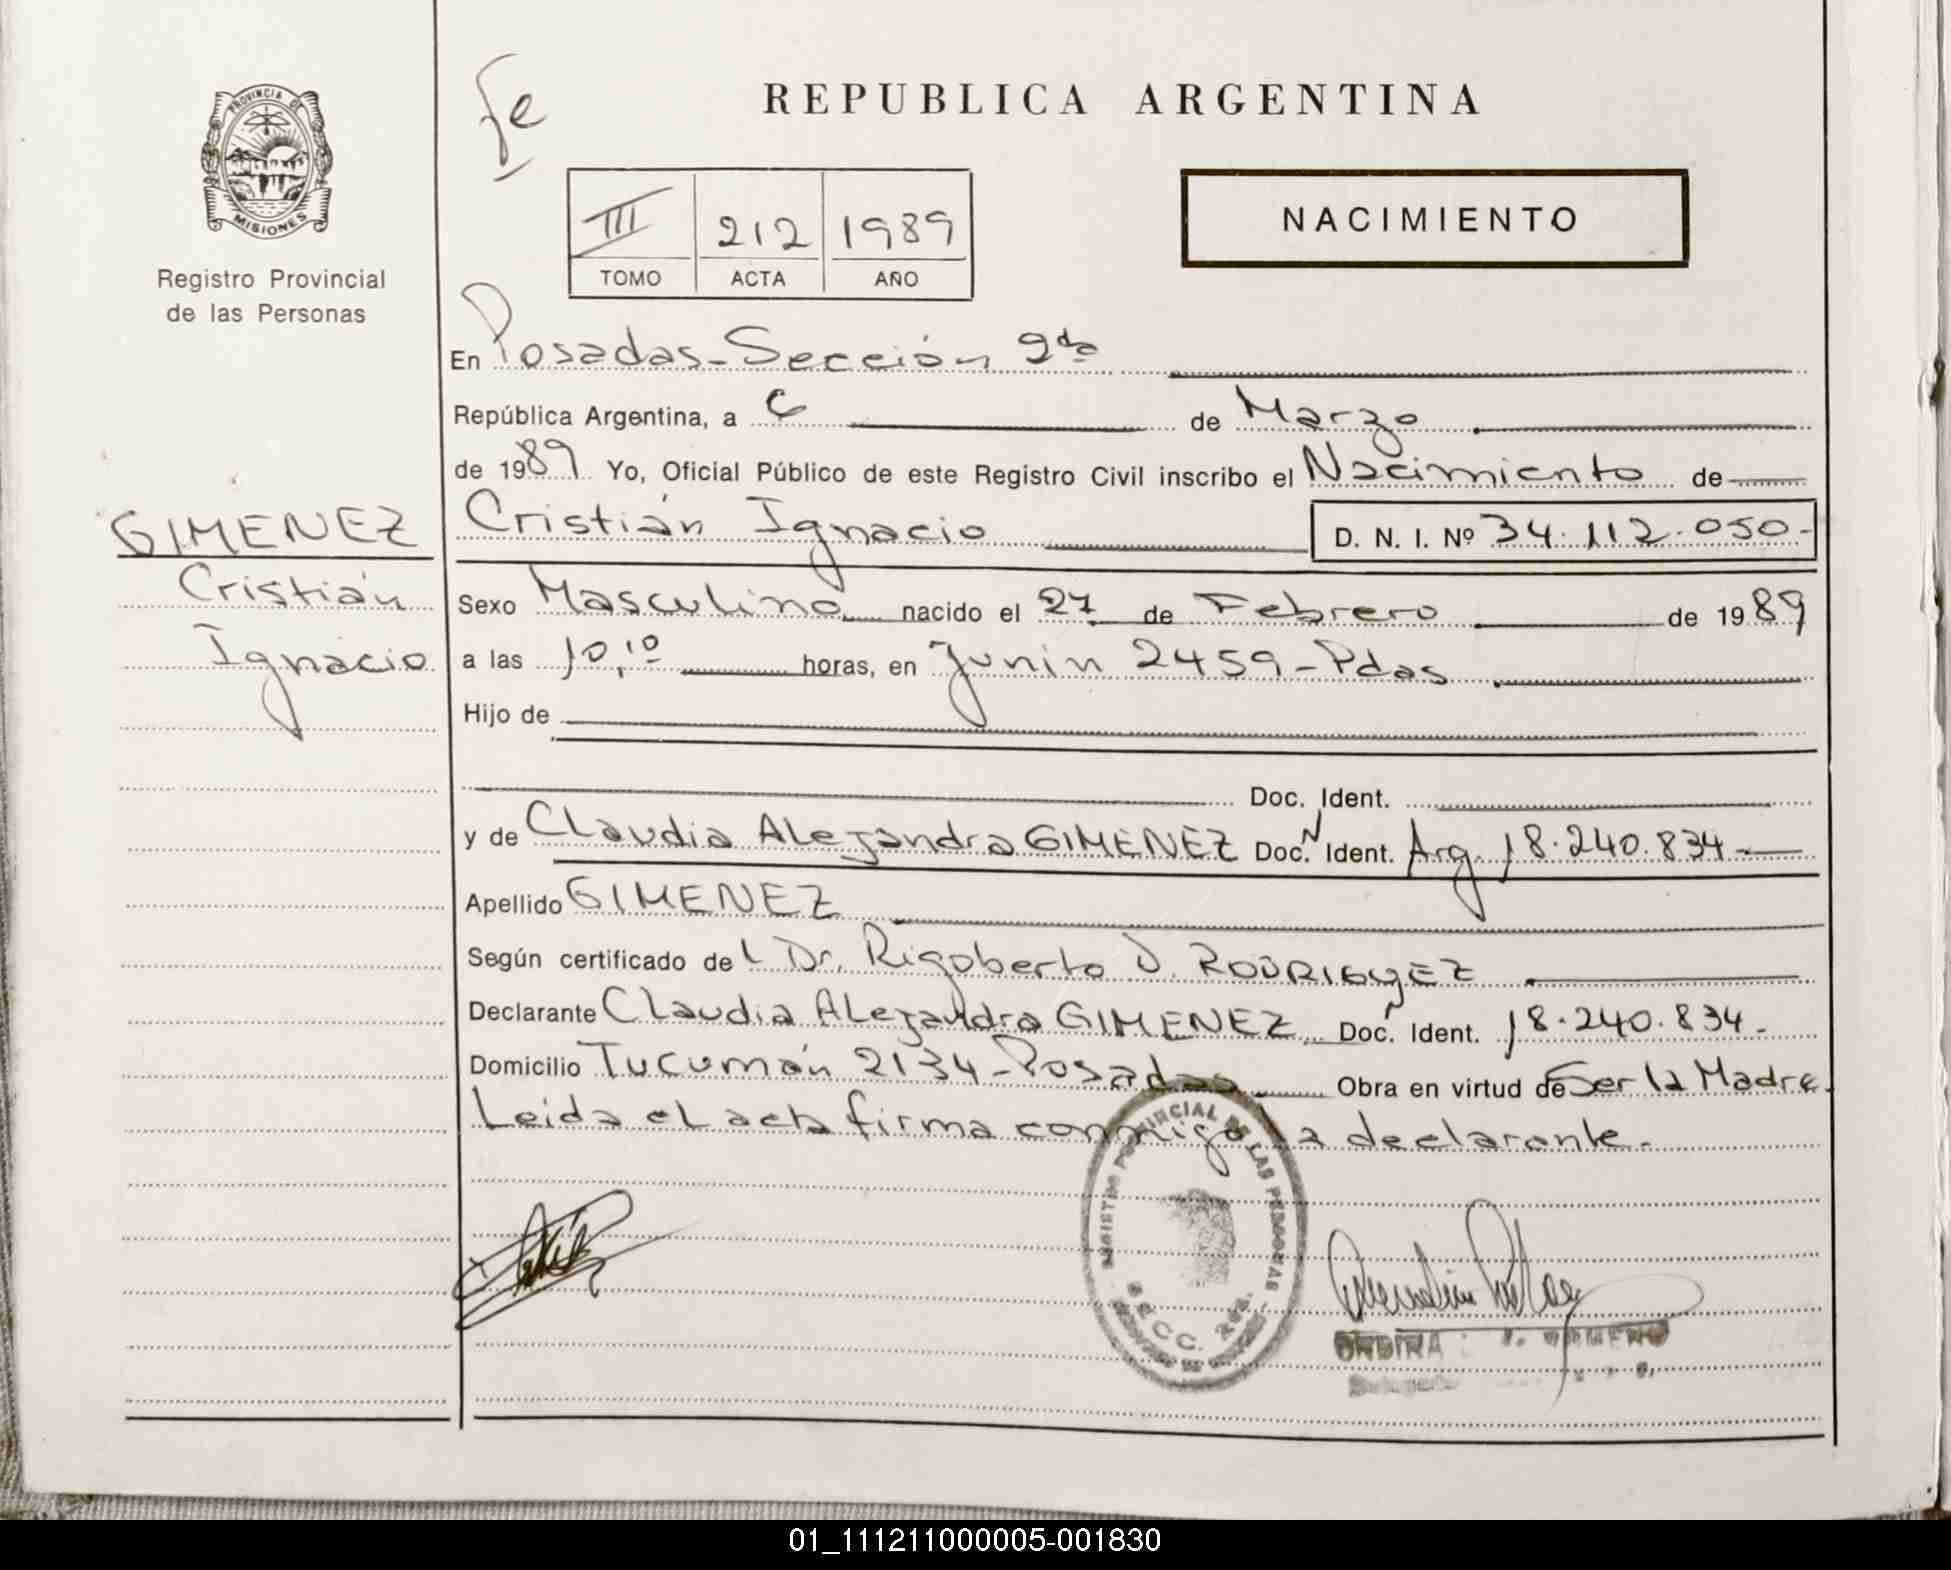 Fe
REPUBLICA ARGENTINA
PROVINCIA DE
MISIONES
Registro Provincial
de las Personas
III 212 1989
TOMO ACTA AÑO
NACIMIENTO
En Posadas-Sección 2da
República Argentina, a 6 de Marzo
de 1989 Yo, Oficial Público de este Registro Civil inscribo el Nacimiento de
GIMENEZ
Cristián
Ignacio
Cristián Ignacio D. N. I. Nº 34.112.050-
Sexo Masculino nacido el 27 de Febrero de 1989
a las 10,10 horas, en Junín 2459-Pdas
Hijo de
Doc. Ident.
y de Claudia Alejandra GIMENEZ Doc. N Ident. Arg. 18.240.834
Apellido GIMENEZ
Según certificado del Dr. Rigoberto D. RODRIGUEZ
Declarante Claudia Alejandra GIMENEZ Doc. N Ident. 18.240.834-
Domicilio Tucumán 2134-Posadas Obra en virtud de Ser la Madre.
Leida el acta firma conmigo la declarante.
PROVINCIAL DE LAS PERSONAS
SECC. 2da.
01_111211000005-001830